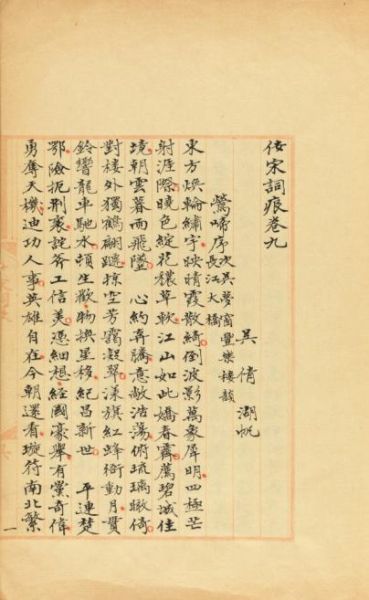 佞宋詞痕卷九
吳倩 湖帆
鶯啼序 次吳夢窗豐樂樓韻
長江大橋
東方煥輪繡宇映晴霞散綺倒波影萬象屏明四極芒
射涯際曉色綻花穠草軟江山如此嬌春霽薦碧城佳
境朝雲暮雨飛墜 心約奔騰意敞浩蕩俯琉璃瞰倚
對樓外獨鶴翩躚掠空芳靄凝翠漾旗紅蜂衙動月貫
鈴響龍車馳水頓生歡物換星移紀昌新世 平連楚
鄂險扼荆襄詫斧工信美憑細想經國豪舉有黨奇偉
勇奪天機迪功人事英雄自在今朝還看璇符南北繁
一